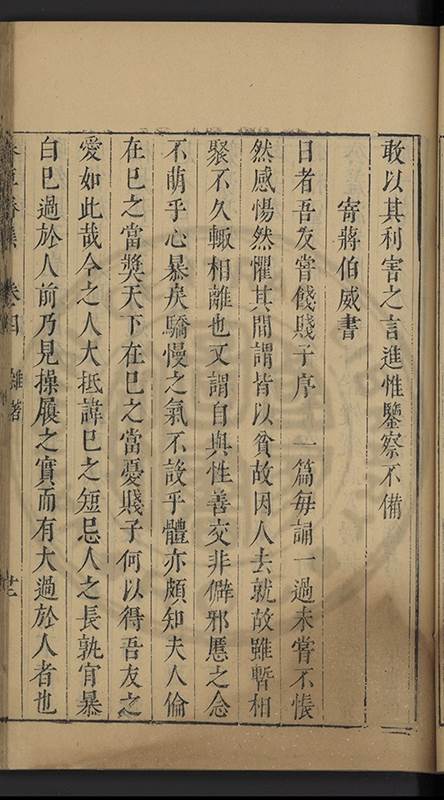 敢以其利害之言進惟鑒察不備
寄蔣伯威書
日者吾友嘗餞賤子序一篇每誦一過未嘗不悵
然感惕然懼其間謂皆以貧故因人去就故雖暫相
聚不久輒相離也又謂自與性善交非僻邪慝之念
不萌乎心暴戾驕慢之氣不設乎體亦頗知夫人倫
在已之當獎天下在已之當憂賤子何以得吾友之
愛如此哉今之人大抵諱已之短忌人之長孰肎暴
白已過於人前乃見操履之實而有大過於人者也
集 卷四 雜著